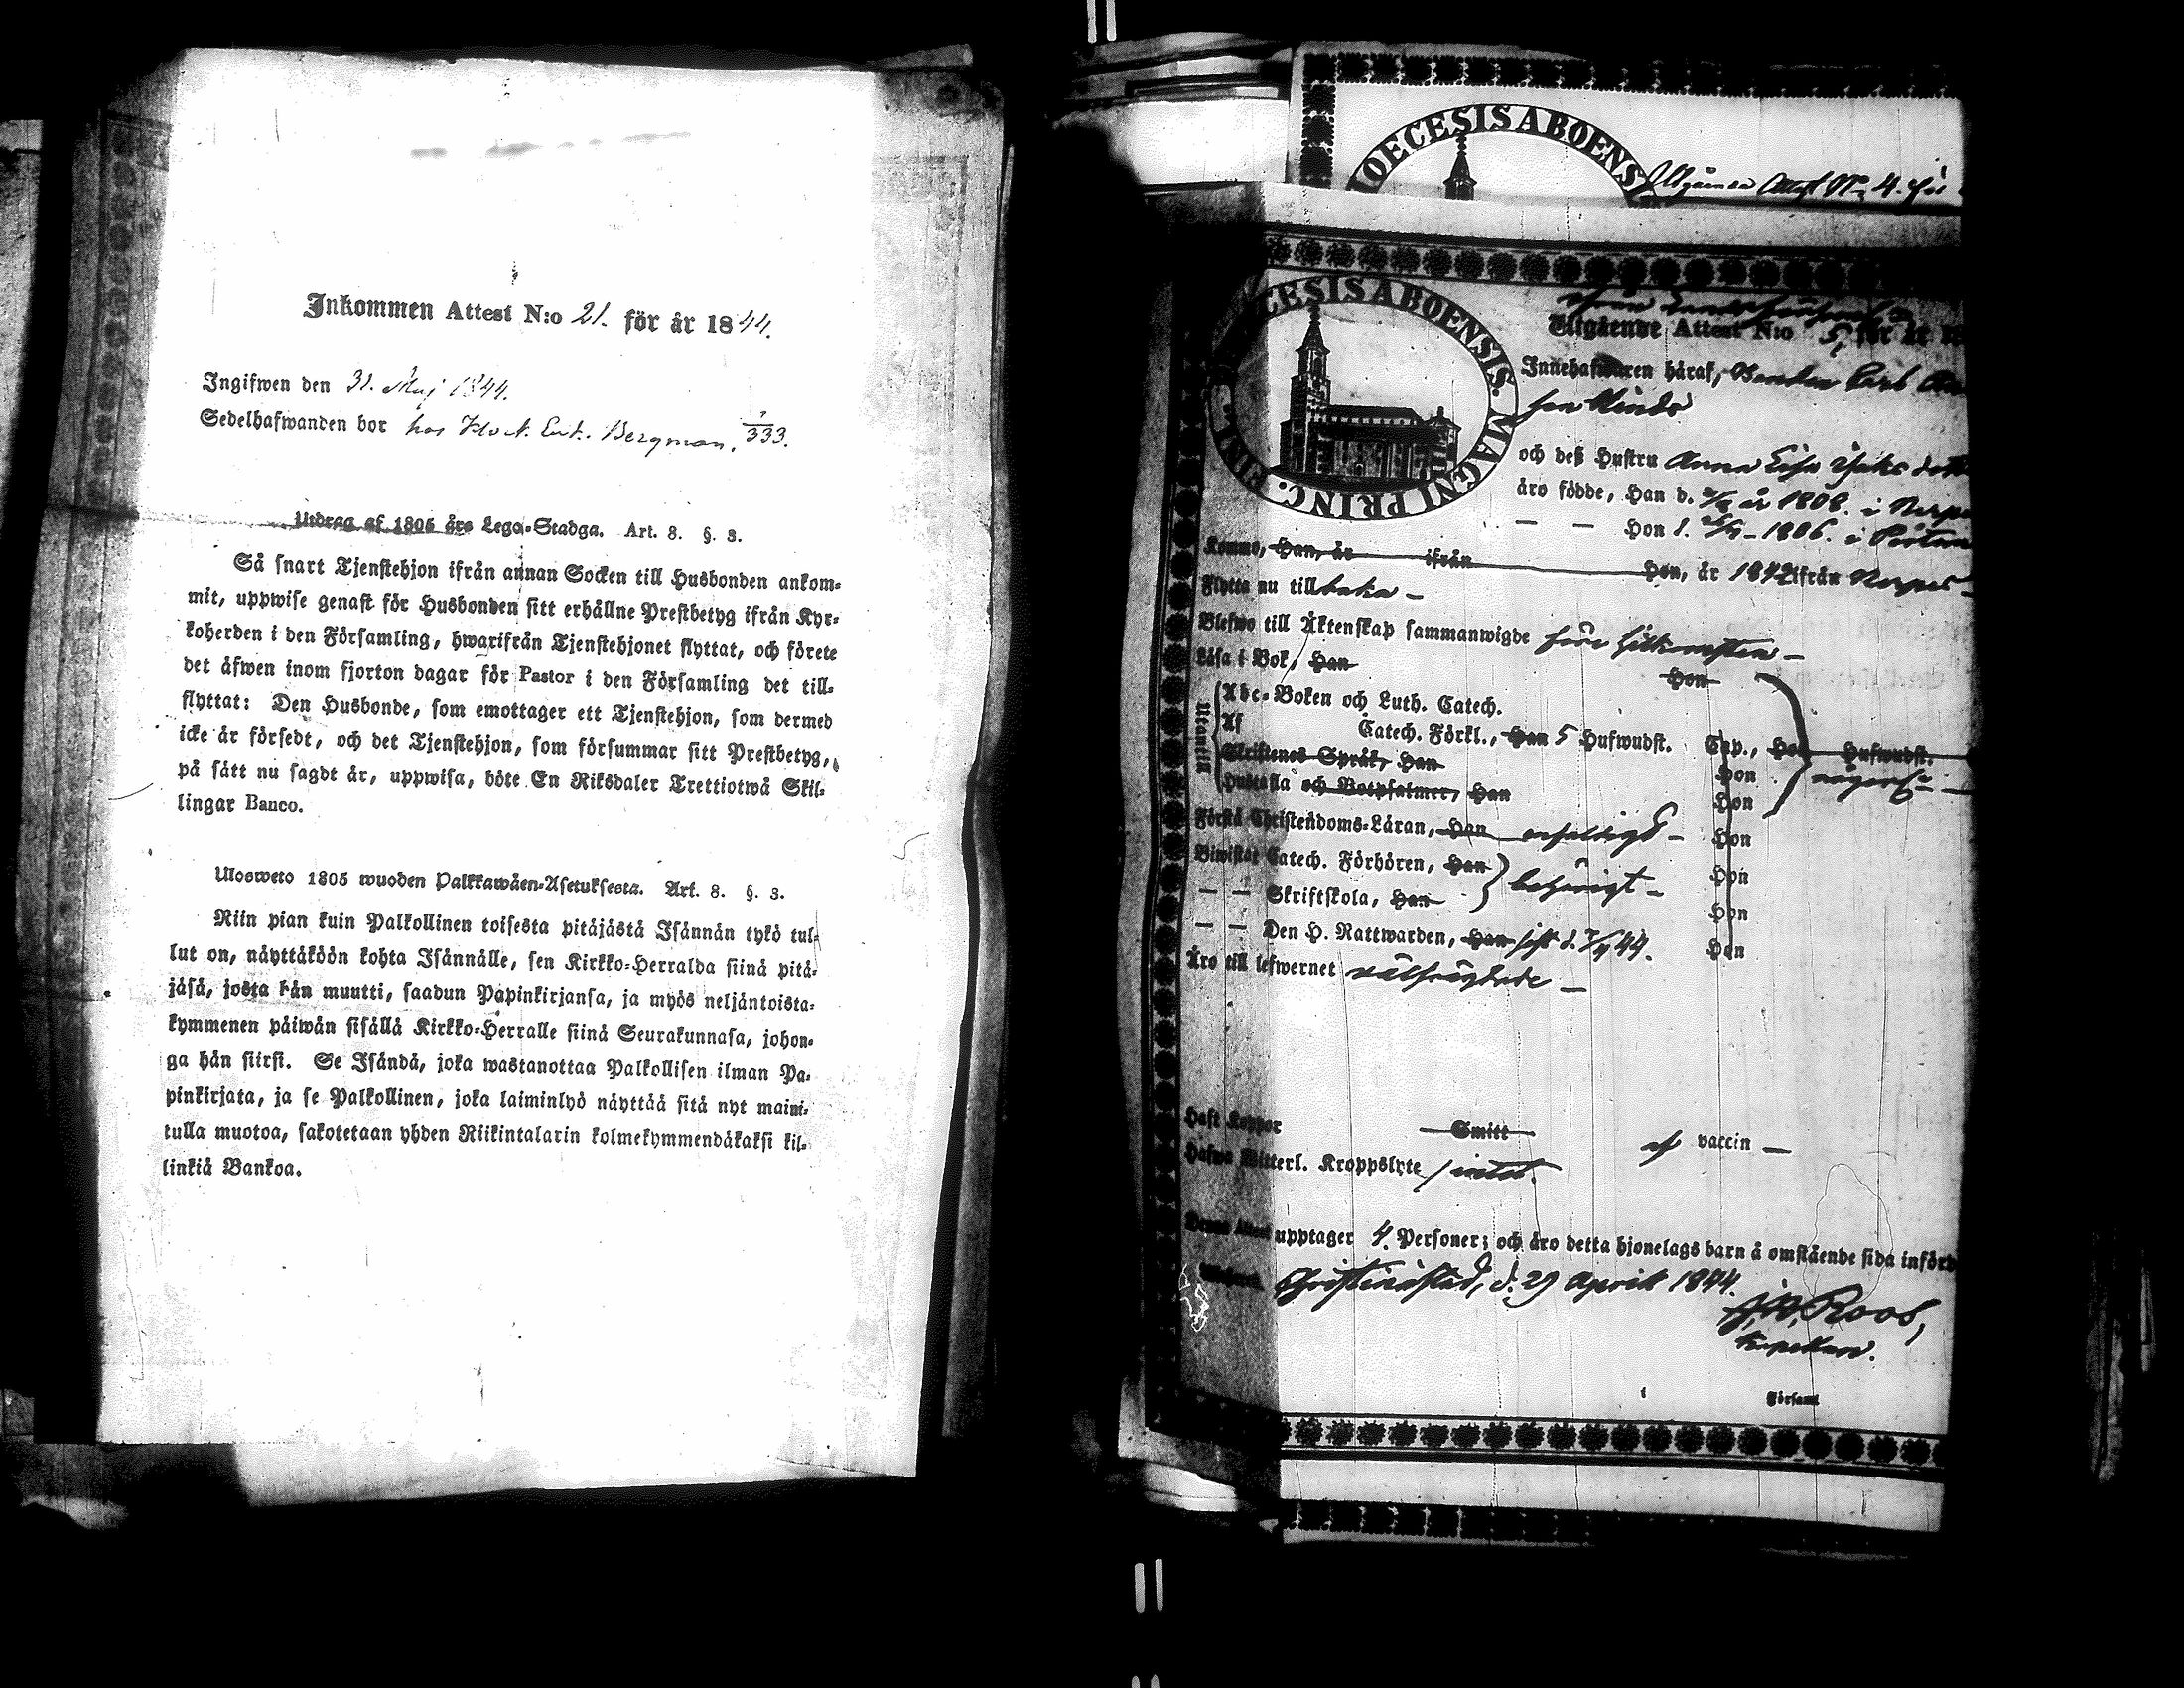 Inkommen Attest N:o 21. för år 1844.
Ingifwen den 31. Maj 1844.
Sedelhafwanden bor hos Bergman, 333.
Utdrag af 1805 års Lego-Stadga. Art. 8. §. 3.
Så snart Tjenstehjon ifrån annan Socken till Husbonden ankom-
mit, uppwise genast för Husbonden sitt erhållne Prestbetyg ifrån Kyr-
koherden i den Församling, hwarifrån Tjenstehjonet flyttat, och förete
det äfwen inom fjorton dagar för Pastor i den Församling det till-
flyttat: Den Husbonde, som emottager ett Tjenstehjon, som dermed
icke är försedt, och det Tjenstehjon, som försummar sitt Prestbetyg,
på sätt nu sagdt är, uppwisa, böte En Riksdaler Trettiotwå Skil-
lingar Banco.
Ulosweto 1805 wuoden Palkkawäen-Asetuksesta. Art. 8. §. 3.
Niin pian kuin Palkollinen toisesta pitäjästä Isännän tykö tul-
lut on, näyttäköön kohta Isännälle, sen Kirkko-Herralda siinä pitä-
jäsä, josta hän muutti, saadun Papinkirjansa, ja myös neljäntoista-
kymmenen päiwän sisällä Kirkko-Herralle siinä Seurakunnasa, johon-
ga hän siirsi. Se Isändä, joka wastanottaa Palkollisen ilman Pa-
pinkirjata, ja se Palkollinen, joka laiminlyö näyttää sitä nyt maini-
tulla muotoa, sakotetaan yhden Riikintalarin kolmekymmendäkaksi kil-
linkiä Bankoa.
IOECESIS ABOENSI
Utgående Attest N:o 4. för
CESIS ABOENSIS. MAGNI PRINC. FINL
Utgående Attest N:o 5, för år
Innehafwaren häraf, Bonden Carl
och deß Hustru Anna
äro födde, Han d. år 1808. i Nerpe
— — Hon d. 1806. i
Kommo, Han, år ifrån Hon, år 1842 ifrån Nerpes
Flytta nu tillbaka —
Blefwo till Äktenskap sammanwigde före hitkomsten —
Läsa i Bok, Han Hon
Utantill
Abc-Boken och Luth. Catech.
Af Catech. Förkl., Han 5 Hufwudst. Cap., Hon Hufwudst.
Skriftenes Språk, Han Hon
Hustafla och Botpsalmer, Han Hon
Förstå Christendoms-Läran, Han enfaldigt — Hon
Biwistat Catech. Förhören, Han Hon
behörigt —
— — Skriftskola, Han Hon
— — Den H. Nattwarden, Han sist d. 44. Hon
Äro till lefwernet välfrägdade —
Haft Koppor Smitt af vaccin —
Hafwa Witterl. Kroppslyte intet.
Denna Attest upptager 4. Personer; och äro detta hjonelags barn å omstående sida införd
Christinæstad, d. 29 April 1844.
Roos,
Kapellan.
i Församl